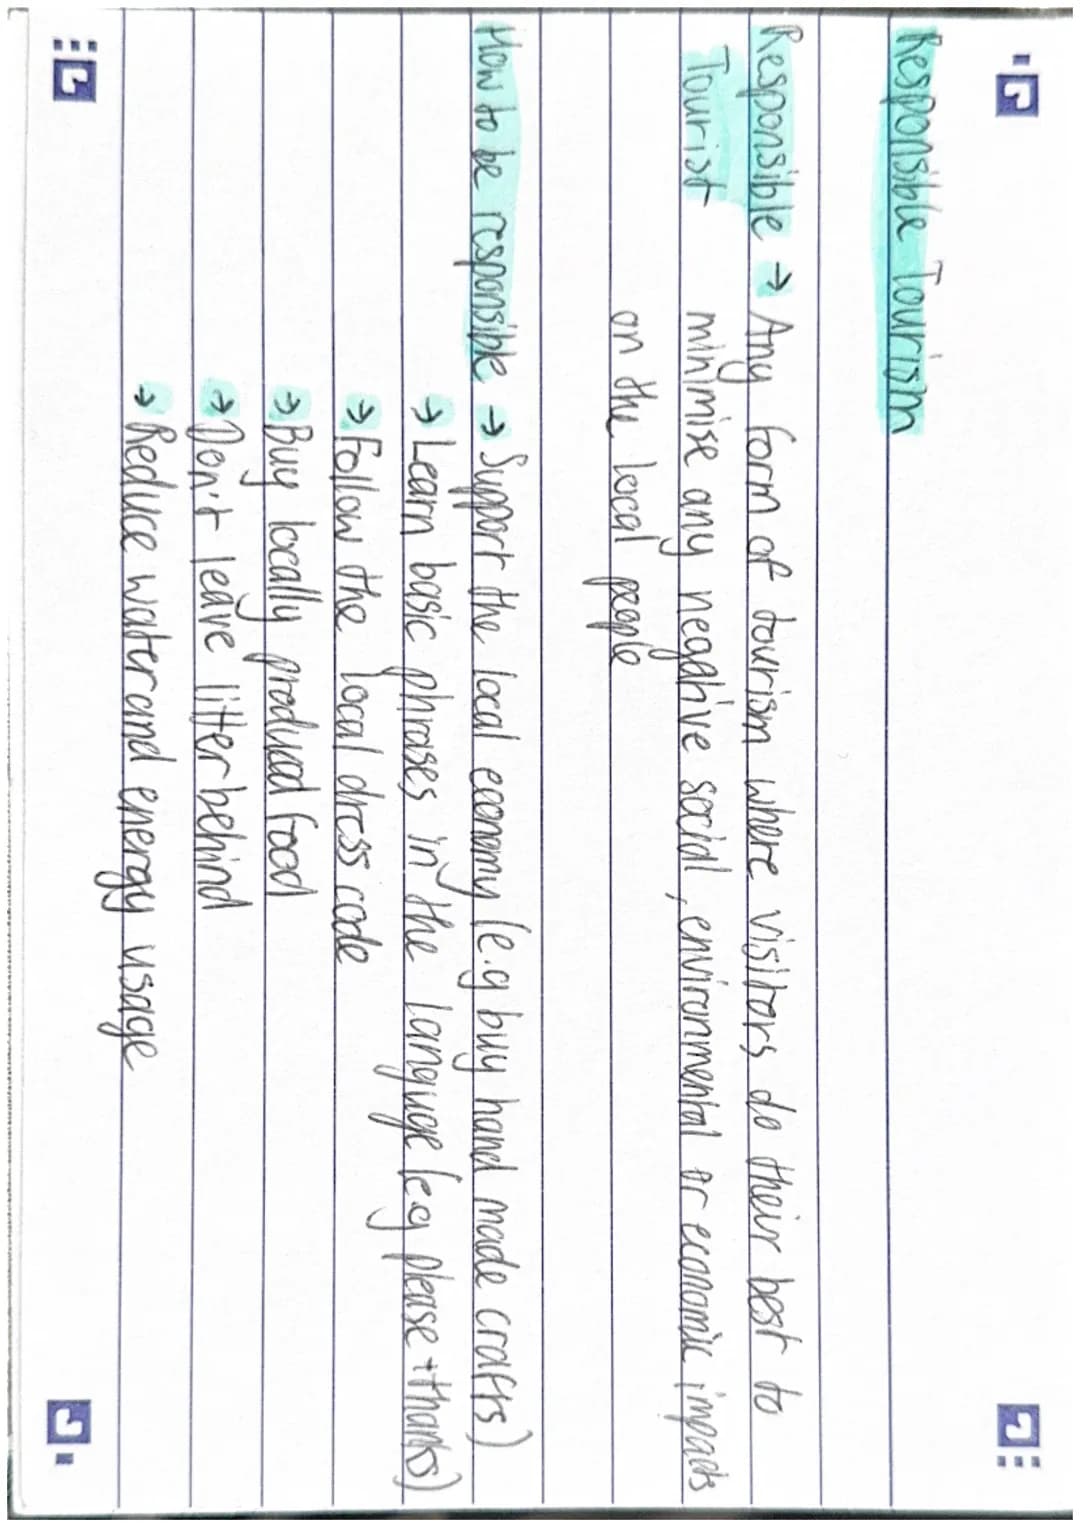 Responsible Tourism
Responsible → Any form of tourism where visitors do their best to
Tourist minimise any negative social, environmental or economic impacts
on the local people
How to be responsible → Support the local economy (e.g buy hand made crafts)
→ Learn basic phrases in the language (eg please + thanks)
→ Follow the local dress code
→ Buy locally produced food
→ Don't leave litter behind
→ Reduce water and energy usage